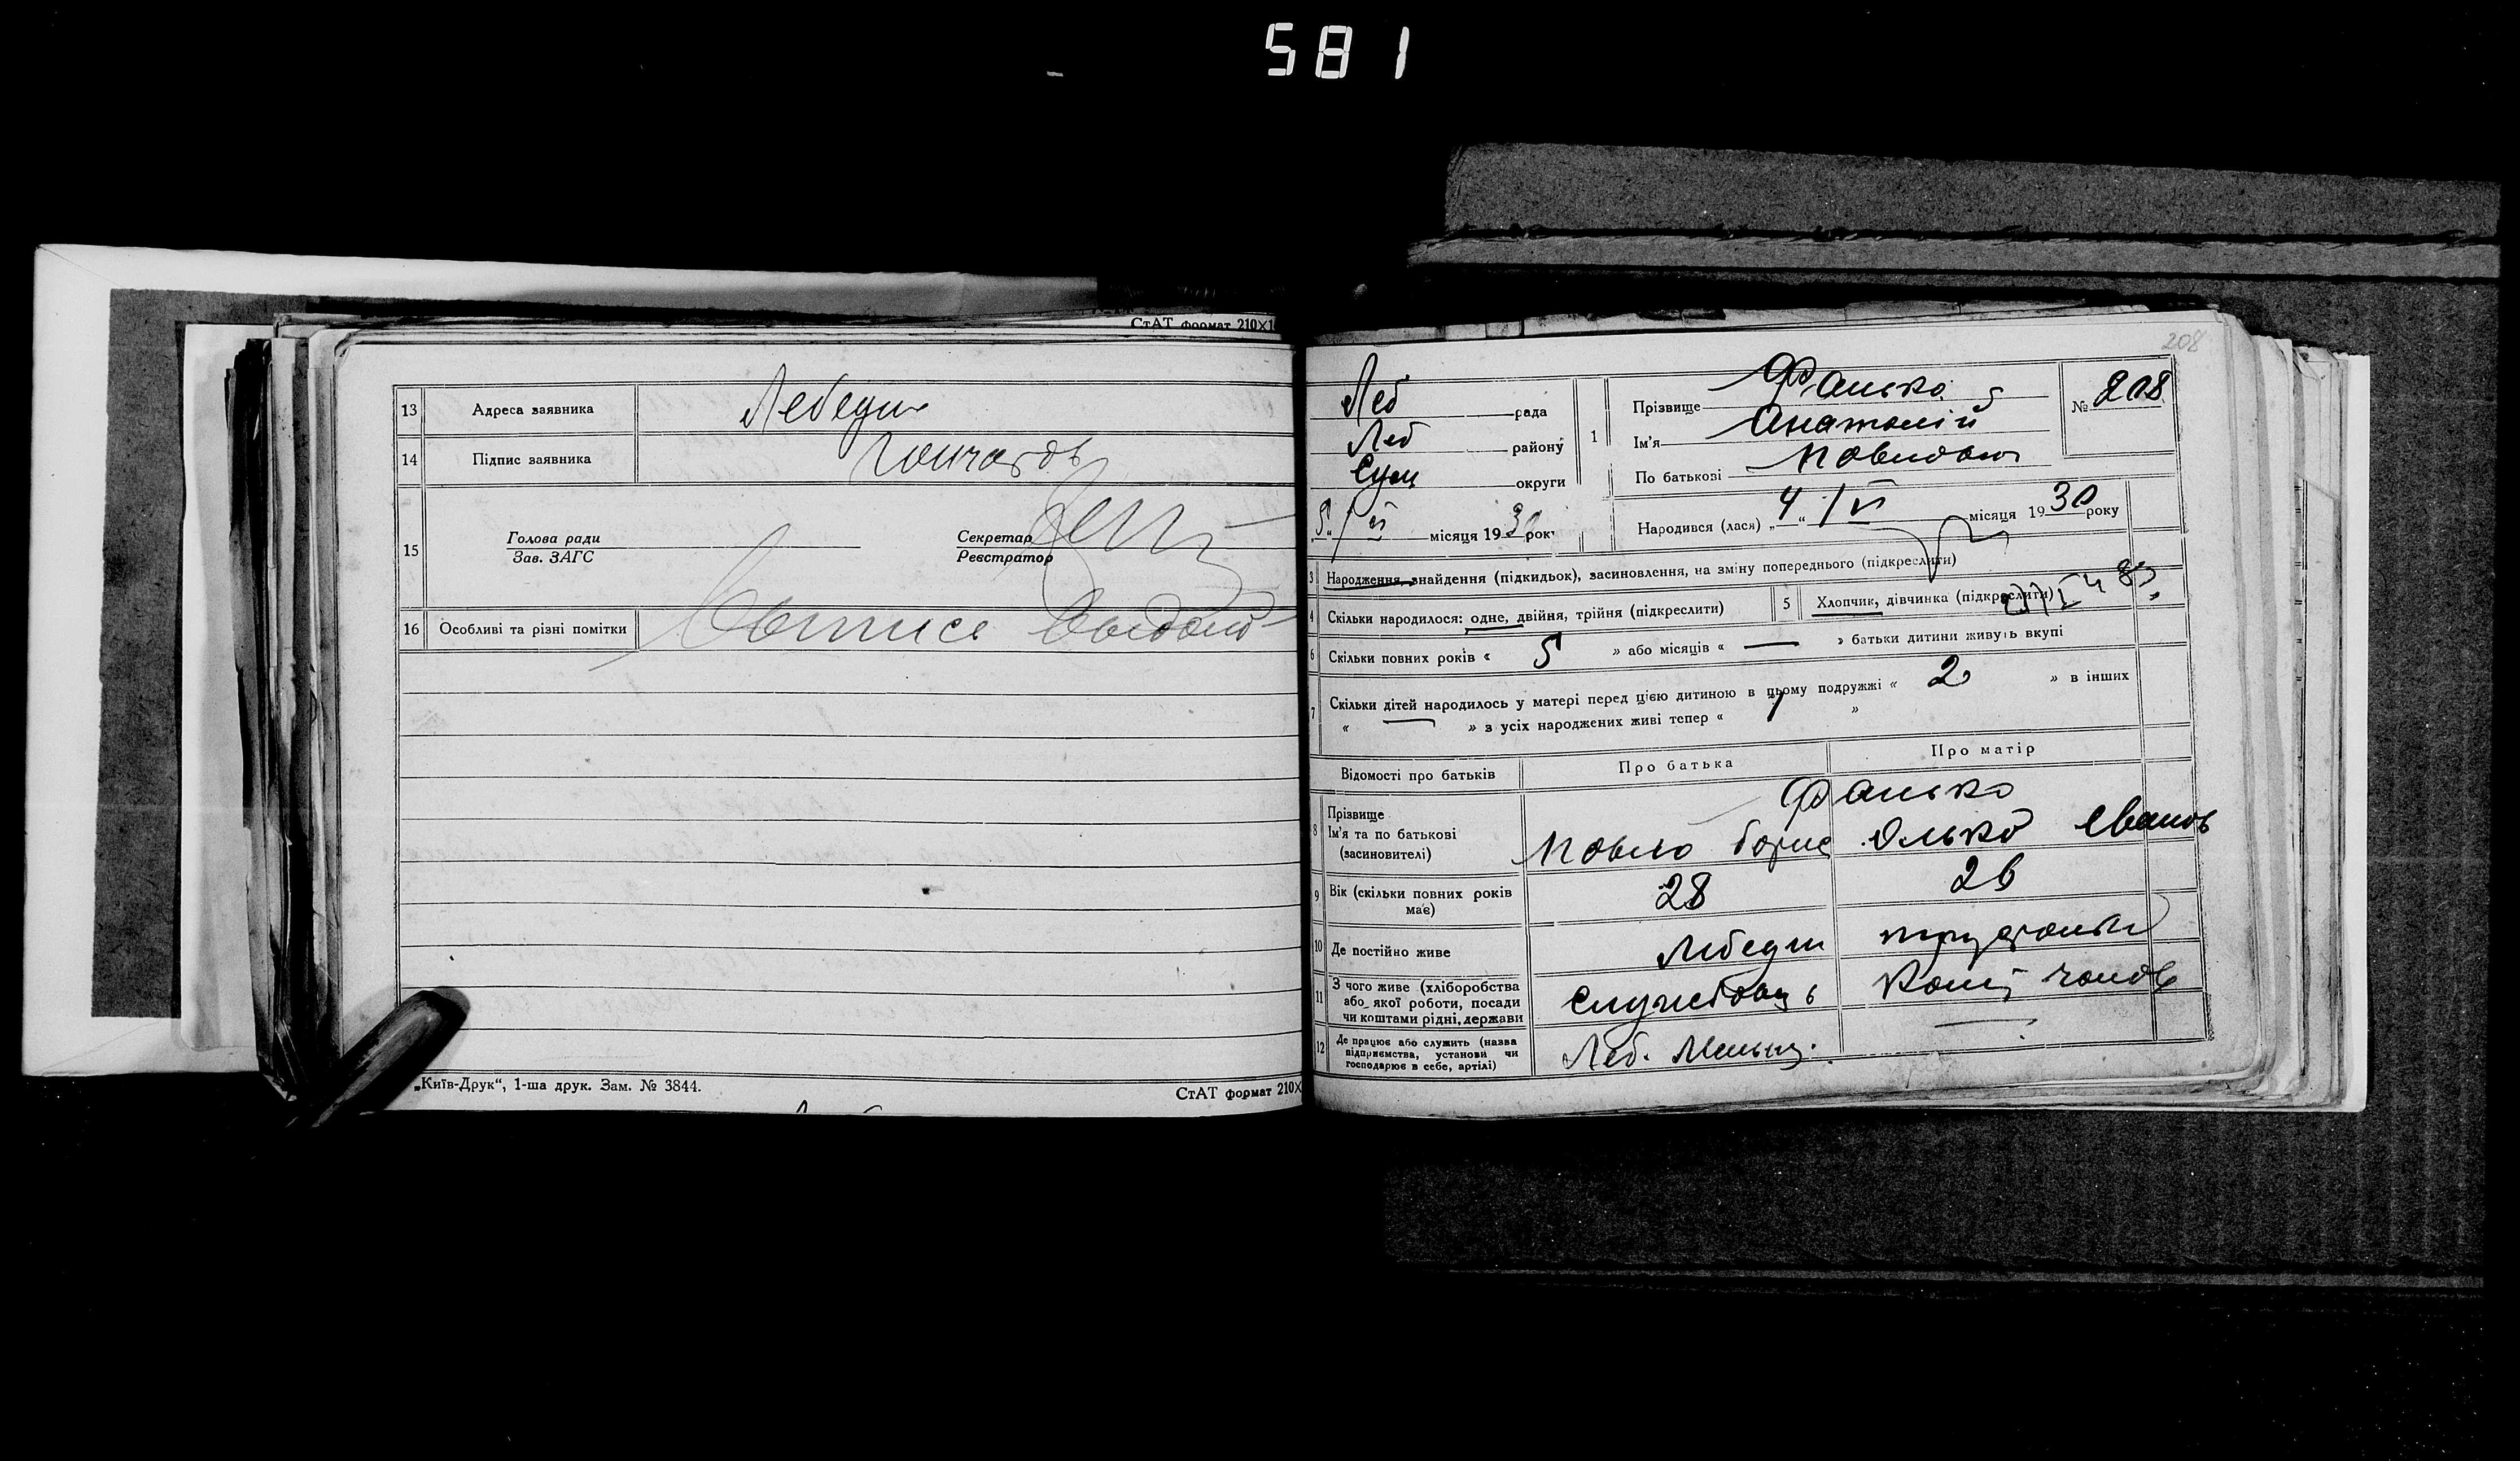 581
СтАТ формат 210Х1
13 Адреса заявника Лебедин
14 Підпис заявника Гончаров
15 Голова ради
Зав. ЗАГС
Секретар
Реєстратор
16 Особливі та різні помітки
„Київ-Друк“, 1-ша друк. Зам. № 3844.
СтАТ формат 210Х
208
Леб рада
Леб району
Сум округи
5 / VI місяця 1930 рок
1 Прізвище Фанько
Ім'я Анатолій
По батькові Павлович
№ 208
Народився (лася) „4“ / VI місяця 1930 року
3 Народження, знайдення (підкидьок), засиновлення, на зміну попереднього (підкреслити)
4 Скільки народилося: одне, двійня, трійня (підкреслити)
5 Хлопчик, дівчинка (підкреслити)
6 Скільки повних років « 5 » або місяців « — » батьки дитини живуть вкупі
7 Скільки дітей народилось у матері перед цією дитиною в цьому подружжі « 2 » в інших
« — » з усіх народжених живі тепер « 1 »
Відомості про батьків Про батька Про матір
8 Прізвище
Ім'я та по батькові
(засновителі)
Фанько
Павло Борис
9 Вік (скільки повних років має) 28 26
10 Де постійно живе Лебедин
11 З чого живе (хліборобства
або якої роботи, посади
чи коштами рідні, держави
службовець
12 Де працює або служить (назва
підприємства, установи чи
господарює в себе, артілі)
Леб.
—